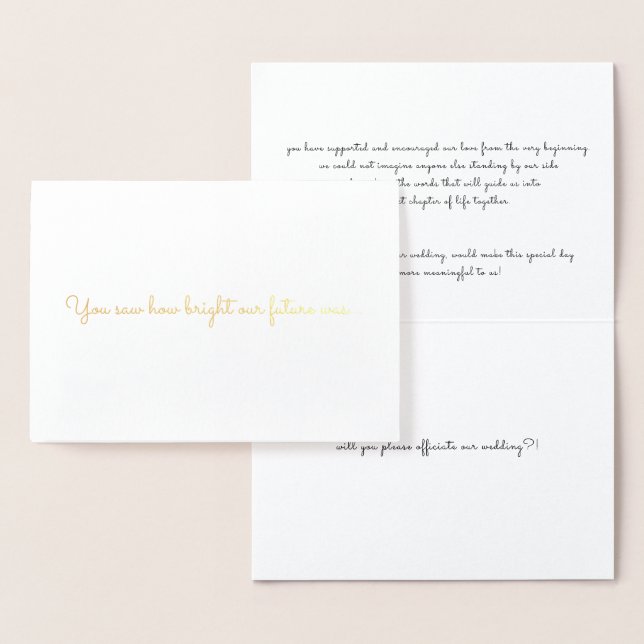 You saw how bright our future was...
you have supported and encouraged our love from the very beginning
we could not imagine anyone else standing by our side
the words that will guide us into
chapter of life together
wedding, would make this special day
more meaningful to us!
will you please officiate our wedding?!